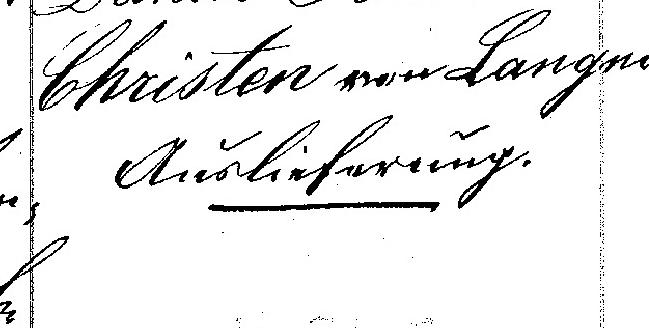 Christen von Langn
Auslieferung.